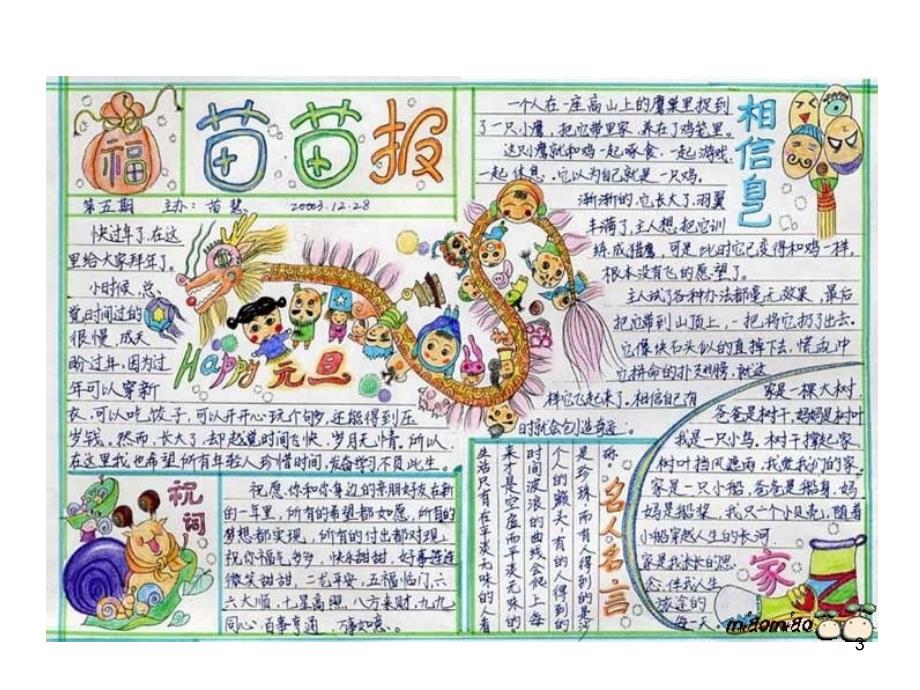 福
苗苗报
第五期 主办：苗慧 2003.12.28
快过年了，在这
里给大家拜年了。
小时候，总
觉时间过的
很慢，成天
盼过年，因为过
年可以穿新
衣，可以吃饺子，可以开开心玩个够，还能得到压
岁钱。然而，长大了，却越觉时间飞快，岁月无情。所以，
在这里我也希望所有年轻人珍惜时间，发奋学习不负此生。
Happy 元旦
相信自己
一个人在一座高山上的鹰巢里捉到
了一只小鹰，把它带回家，养在了鸡笼里。
这只鹰就和鸡一起啄食，一起游戏，
一起休息，它以为自己就是一只鸡。
渐渐的，它长大了，羽翼
丰满了，主人想把它训
练成猎鹰，可是此时它已变得和鸡一样，
根本没有飞的愿望了。
主人试了各种办法都毫无效果，最后
把它带到山顶上，一把将它扔了出去。
它像块石头似的直掉下去，慌乱中
它拼命的扑翅膀，就这
样它飞起来了。相信自己有
时就会创造奇迹。
祝词
祝愿你和你身边的亲朋好友在新
的一年里，所有的希望都如愿，所有的
梦想都实现，所有的付出都对现。
祝你福气多多，快乐甜甜，好事连连，
微笑甜甜，二龙平安，五福临门，六
六大顺，七星高照，八方来财，九九
同心，百事亨通，万事如意。
名人名言
是珍珠，而有人得到的是
个人的额头，有的人得到的
时间波浪的曲线会爬上每
来才是空虚而平淡无味的。
生活只有在平淡无味的人看
家
家是一棵大树，
爸爸是树干，妈妈是树叶
我是一只小鸟，树干撑起家，
树叶挡风遮雨，我爱我们的家。
家是一只小船，爸爸是船身，妈
妈是船桨，我只一个小贝壳，随着
小船穿越人生的长河
家是我求长的思
念，伴我人生
旅途的
每一天。
miaomiao
3